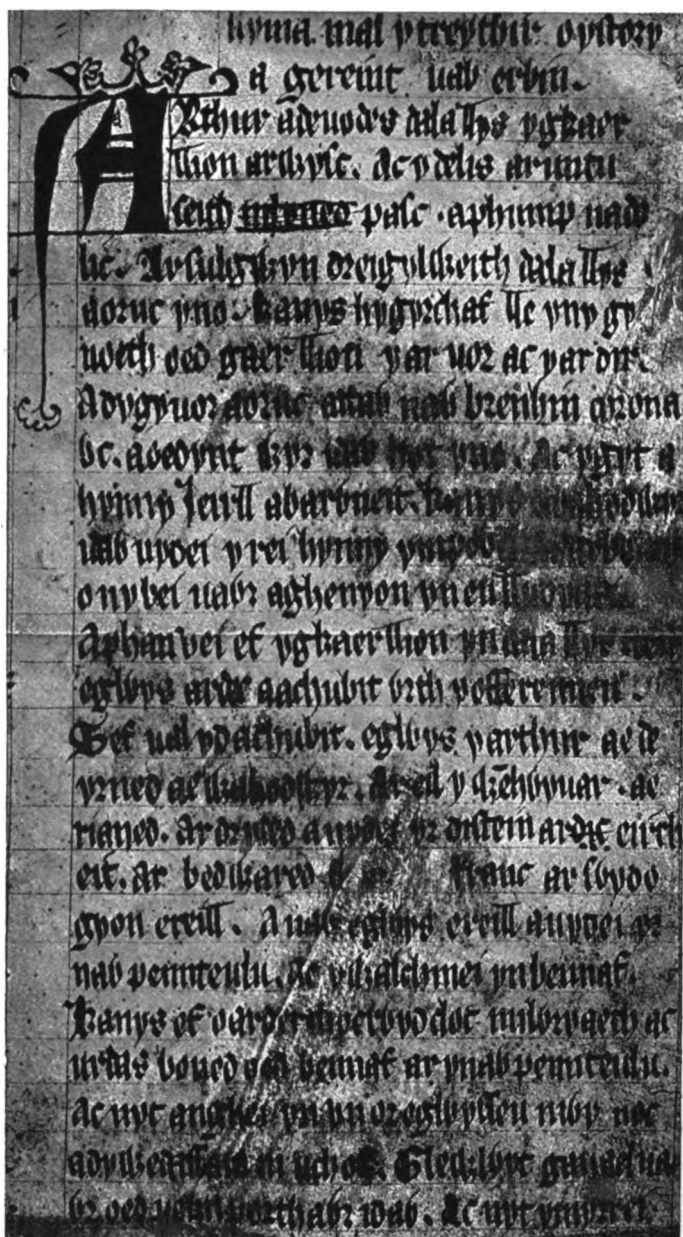 hyma mal y treythir oystory
a gereint uab erbin.
ARthur adeuodes dala llys ygkaer
llion arwysc. Ac ydelis aruntu
seith pasc. aphump nado
lic. Ar sulgwyn dreigylweith dala llys
aoruc yno. kanys hygyrchaf lle yny gy
uoeth oed gaer llion yar uor ac yar dir.
Adygyuor aoruc attaw naw brenhin corona
wc. aoedynt wyr idaw hyt yno. Ac ygyt a
hynny Ieirll abarwneit. kanys
uydei yrei hynny
onybei uawr aghenyon yn eu
Aphan vei ef ygkaer llion yn dala llys teir
eglwys ardec aachubit wrth yofferenneu.
Sef ual ydachubit. eglwys yarthur ae de
yrned ae wahodwyr. Ar eil y wenhwyuar. ae
rianed. Ar dryded auydei yr distein ar eirch
eit. Ar bedwared franc ar swydo
gyon ereill. A naw eglwys ereill auydei
naw pennteulu. Ac ywalchmei yn bennaf.
kanys ef oarderchocrwyd clot milwryaeth ac
urdas boned oed bennaf ar ynaw pennteulu.
Ac nyt anghei yn yr un oreglwysseu mwy noc
adywedassam ni uchot. Glewlwyt gauaelua
wr oed penn porthawr idaw. Ac nyt ymyrrei